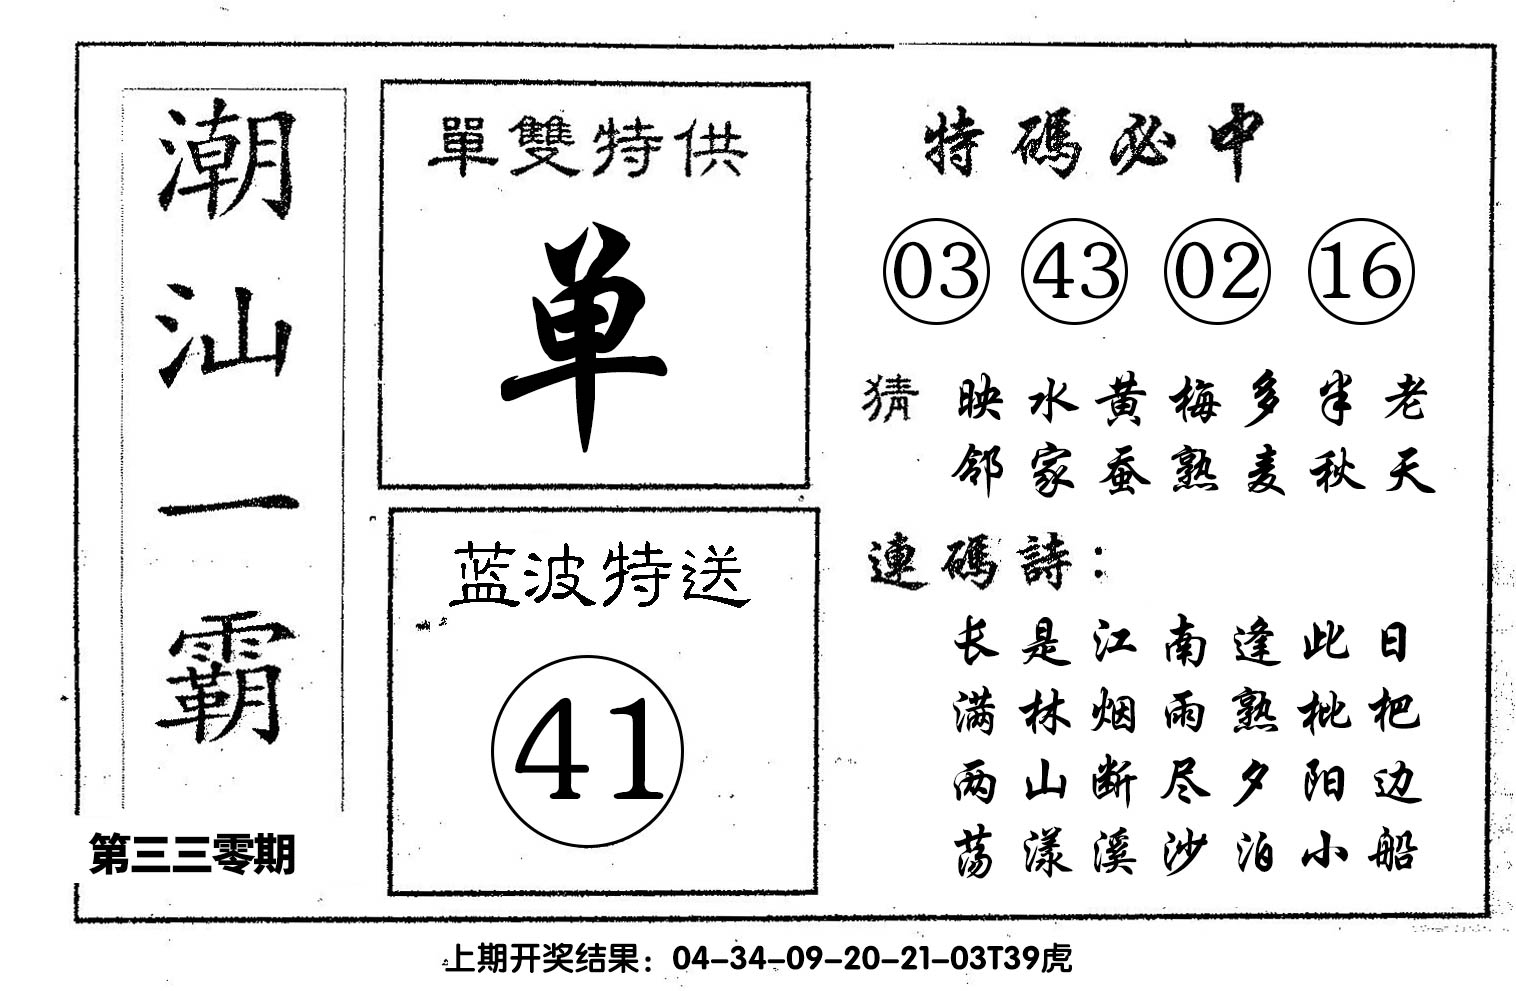 潮汕一霸
第三三零期
單雙特供
单
蓝波特送
41
特碼必中
03 43 02 16
猜 映水黄梅多半老
邻家蚕熟麦秋天
連碼詩：
长是江南逢此日
满林烟雨熟枇杷
两山断尽夕阳边
荡漾溪沙泊小船
上期开奖结果：04-34-09-20-21-03T39虎